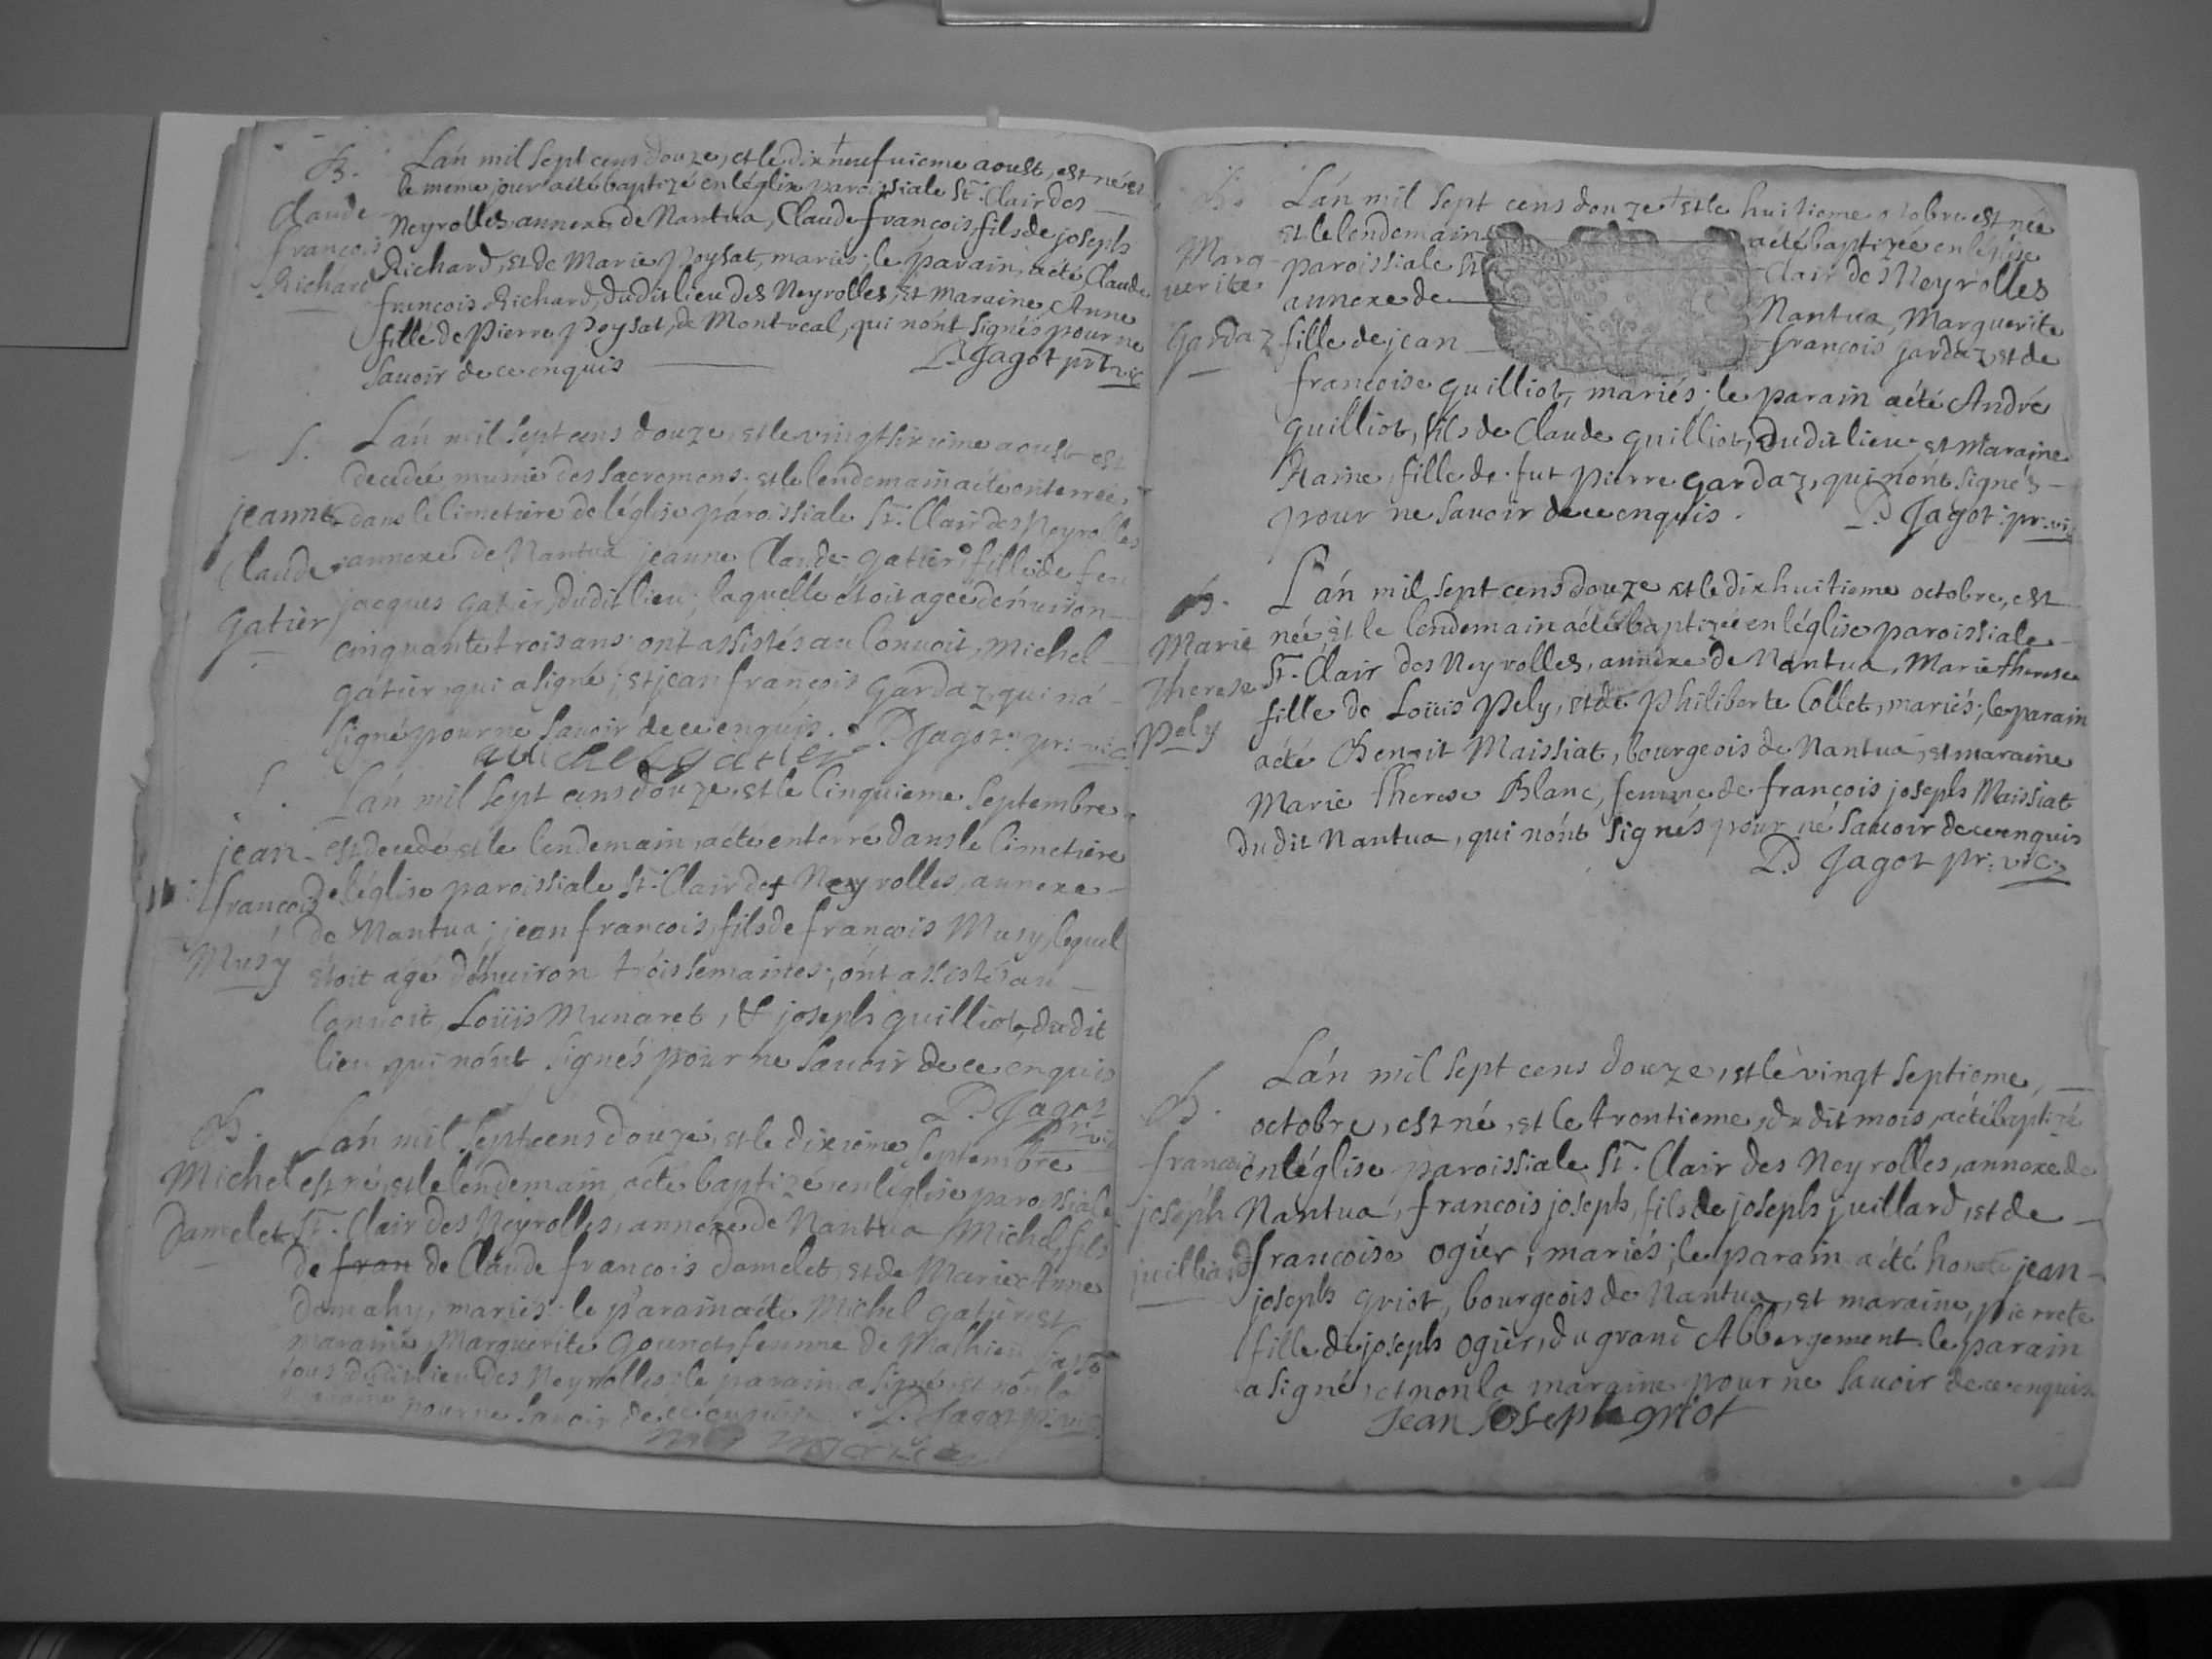 B.
Claude
françois
Richard
Lán mil sept cens douze, et le dix neufuieme aoust, est né et
le méme jour a été baptizé en léglise paroissiale St. Clair des
Neyrolles annexe de Nantua, Claude françois, fils de joseph
Richard, et de Marie Poysat, mariés; le parain, a été Claude
françois Richard, dudit lieu des Neyrolles, et maraine, Anne
fille de Pierre Poysat, de Montreal, qui nónt signés pour ne
savoir de ce enquis
P. Jagot pr. vic
S.
jeanne
Claude
gatier
Lán mil sept cens douze, et le vingt sixieme aoust est
decedée munie des sacremens. et le lendemain a été enterrée
dans le Cimetiere de léglise paroissiale St. Clair des Neyrolles
annexe de Nantua jeanne Claude gatier, fille de feu
jacques gatier, dudit lieu; laquelle étoit agée dénuiron
cinquante trois ans; ónt assistés au Conuoit, Michel
gatier qui a signé; et jean françois gardaz, qui ná
signé pour ne savoir de ce enquis. P. Jagot pr. vic.
Michel gatier
S.
jean
françois
Musy
Lán mil sept cens douze, et le Cinquieme Septembre
est decedé et le lendemain, a été enterré dans le Cimetiere
de léglise paroissiale St. Clair des Neyrolles, annexe
de Nantua; jean françois, fils de françois Musy, lequel
étoit agé dénuiron tróis semaines; ónt assistés au
Conuoit, Loüis Munaret, & joseph guilliot, dudit
lieu qui nónt signés pour ne savoir de ce enquis
P. Jagot
pr. vic
B.
Michel
Damelet
Lán mil sept cens douze, et le dixieme Septembre
est né, et le lendemain, a été baptizé en léglise paroissiale
St. Clair des Neyrolles, annexe de Nantua Michel, fils
de fran de Claude françois Damelet, et de Marie Anne
Damahy, mariés. le parain a été Michel gatier et
maraine, Marguerite gounet, femme de Mathieu
tous dudit lieu des Neyrolles; le parain a signé et non la
maraine pour ne savoir de ce enquis. P. Jagot pr. vic
B.
Marg
uerite
gardaz
Lán mil sept cens douze et le huitieme octobre est née
et le lendemain a été baptizée en léglise
paroissiale St Clair des Neyrolles
annexe de Nantua, Marguerite
fille de jean françois gardaz, et de
françoise guilliot, mariés; le parain a été André
guilliot, fils de Claude guilliot, dudit lieu et Maraine
, fille de fut pierre gardaz, qui nónt signés
pour ne savoir de ce enquis. P. Jagot: pr. vic
B.
Marie
Therese
Pely
Lán mil sept cens douze et le dix huitieme octobre, est
née, et le lendemain a été baptizée en léglise paroissiale
St. Clair des Neyrolles, annexe de Nantua, Marie therese
fille de Loüis Pely, et de philiberte Collet, mariés; le parain
a été Benoit Maissiat, bourgeois de Nantua, et maraine
Marie Therese Blanc, femme de françois joseph Maissiat
dudit Nantua, qui nónt signés pour ne savoir de ce enquis
P. Jagot pr. vic
B.
françois
joseph
juilliard
Lán mil sept cens douze, et le vingt septieme,
octobre, est né, et le trentieme, dudit mois, a été baptizé
en léglise paroissiale St. Clair des Neyrolles, annexe de
Nantua, françois joseph, fils de joseph juillard, et de
françoise ogier, mariés; le parain a été honete jean
joseph griot, bourgeois de Nantua, et maraine, pierrete
fille de joseph ogier, du grand Abbergement. le parain
a signé, et non la maraine pour ne savoir de ce enquis
Jean Joseph griot